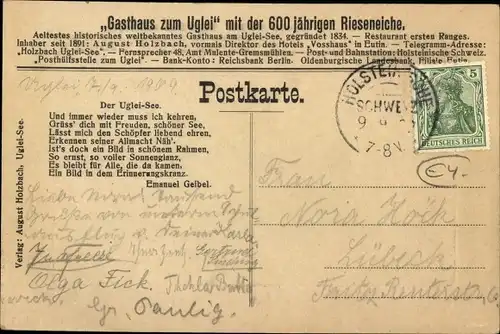 „Gasthaus zum Uglei" mit der 600 jährigen Rieseneiche.
Aeltestes historisches weitbekanntes Gasthaus am Uglei-See, gegründet 1834. — Restaurant ersten Ranges.
Inhaber seit 1891: August Holzbach, vormals Direktor des Hotels „Vosshaus" in Eutin. — Telegramm-Adresse:
„Holzbach Ugleisee". — Fernsprecher 48, Amt Malente-Gremsmühlen. — Post- und Bahnstation: Holsteinische Schweiz.
„Posthülfsstelle zum Uglei" — Bank-Konto: Reichsbank Berlin. Oldenburgische Landesbank, Eutin.
Uglei, 7/9. 1909.
Postkarte.
Der Uglei-See.
Und immer wieder muss ich kehren,
Grüss' dich mit Freuden, schöner See,
Lässt mich den Schöpfer liebend ehren,
Erkennen seiner Allmacht Näh'.
Ist's doch ein Bild in schönem Rahmen,
So ernst, so voller Sonnenglanz,
Es bleibt für Alle, die da kamen.
Ein Bild in dem Erinnerungskranz.
Emanuel Geibel.
Verlag: August Holzbach, Uglei-See.
HOLSTEIN.
SCHWEIZ
7-8N
5
DEUTSCHES REICH
E4.
Frau
Nora Höck
Lübeck
Fritz Reuterstr. 6
Liebe
Olga Fick. Thekla
Gr. Paulig.